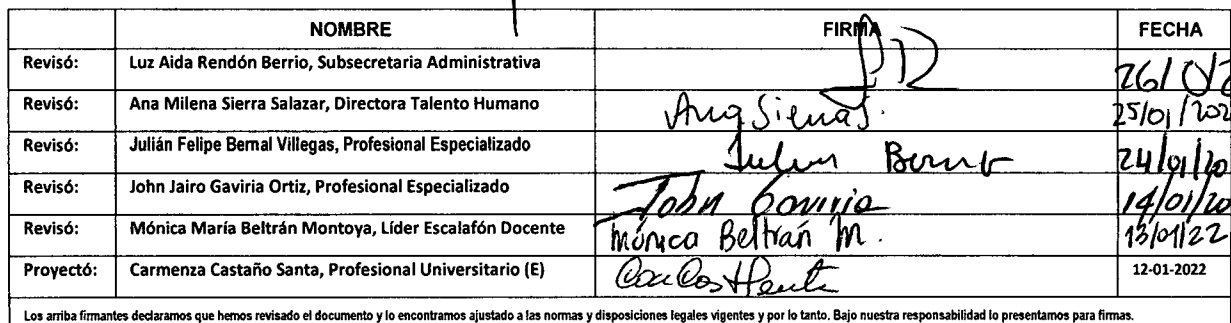 NOMBRE FIRMA FECHA
Revisó: Luz Aida Rendón Berrio, Subsecretaria Administrativa 26/
Revisó: Ana Milena Sierra Salazar, Directora Talento Humano Ana Sierra S. 25/01/202
Revisó: Julián Felipe Bernal Villegas, Profesional Especializado Julian Bernal 24/01/20
Revisó: John Jairo Gaviria Ortiz, Profesional Especializado John Gaviria 14/01/20
Revisó: Mónica María Beltrán Montoya, Líder Escalafón Docente Mónica Beltrán M. 13/01/22
Proyectó: Carmenza Castaño Santa, Profesional Universitario (E) 12-01-2022
Los arriba firmantes declaramos que hemos revisado el documento y lo encontramos ajustado a las normas y disposiciones legales vigentes y por lo tanto. Bajo nuestra responsabilidad lo presentamos para firmas.